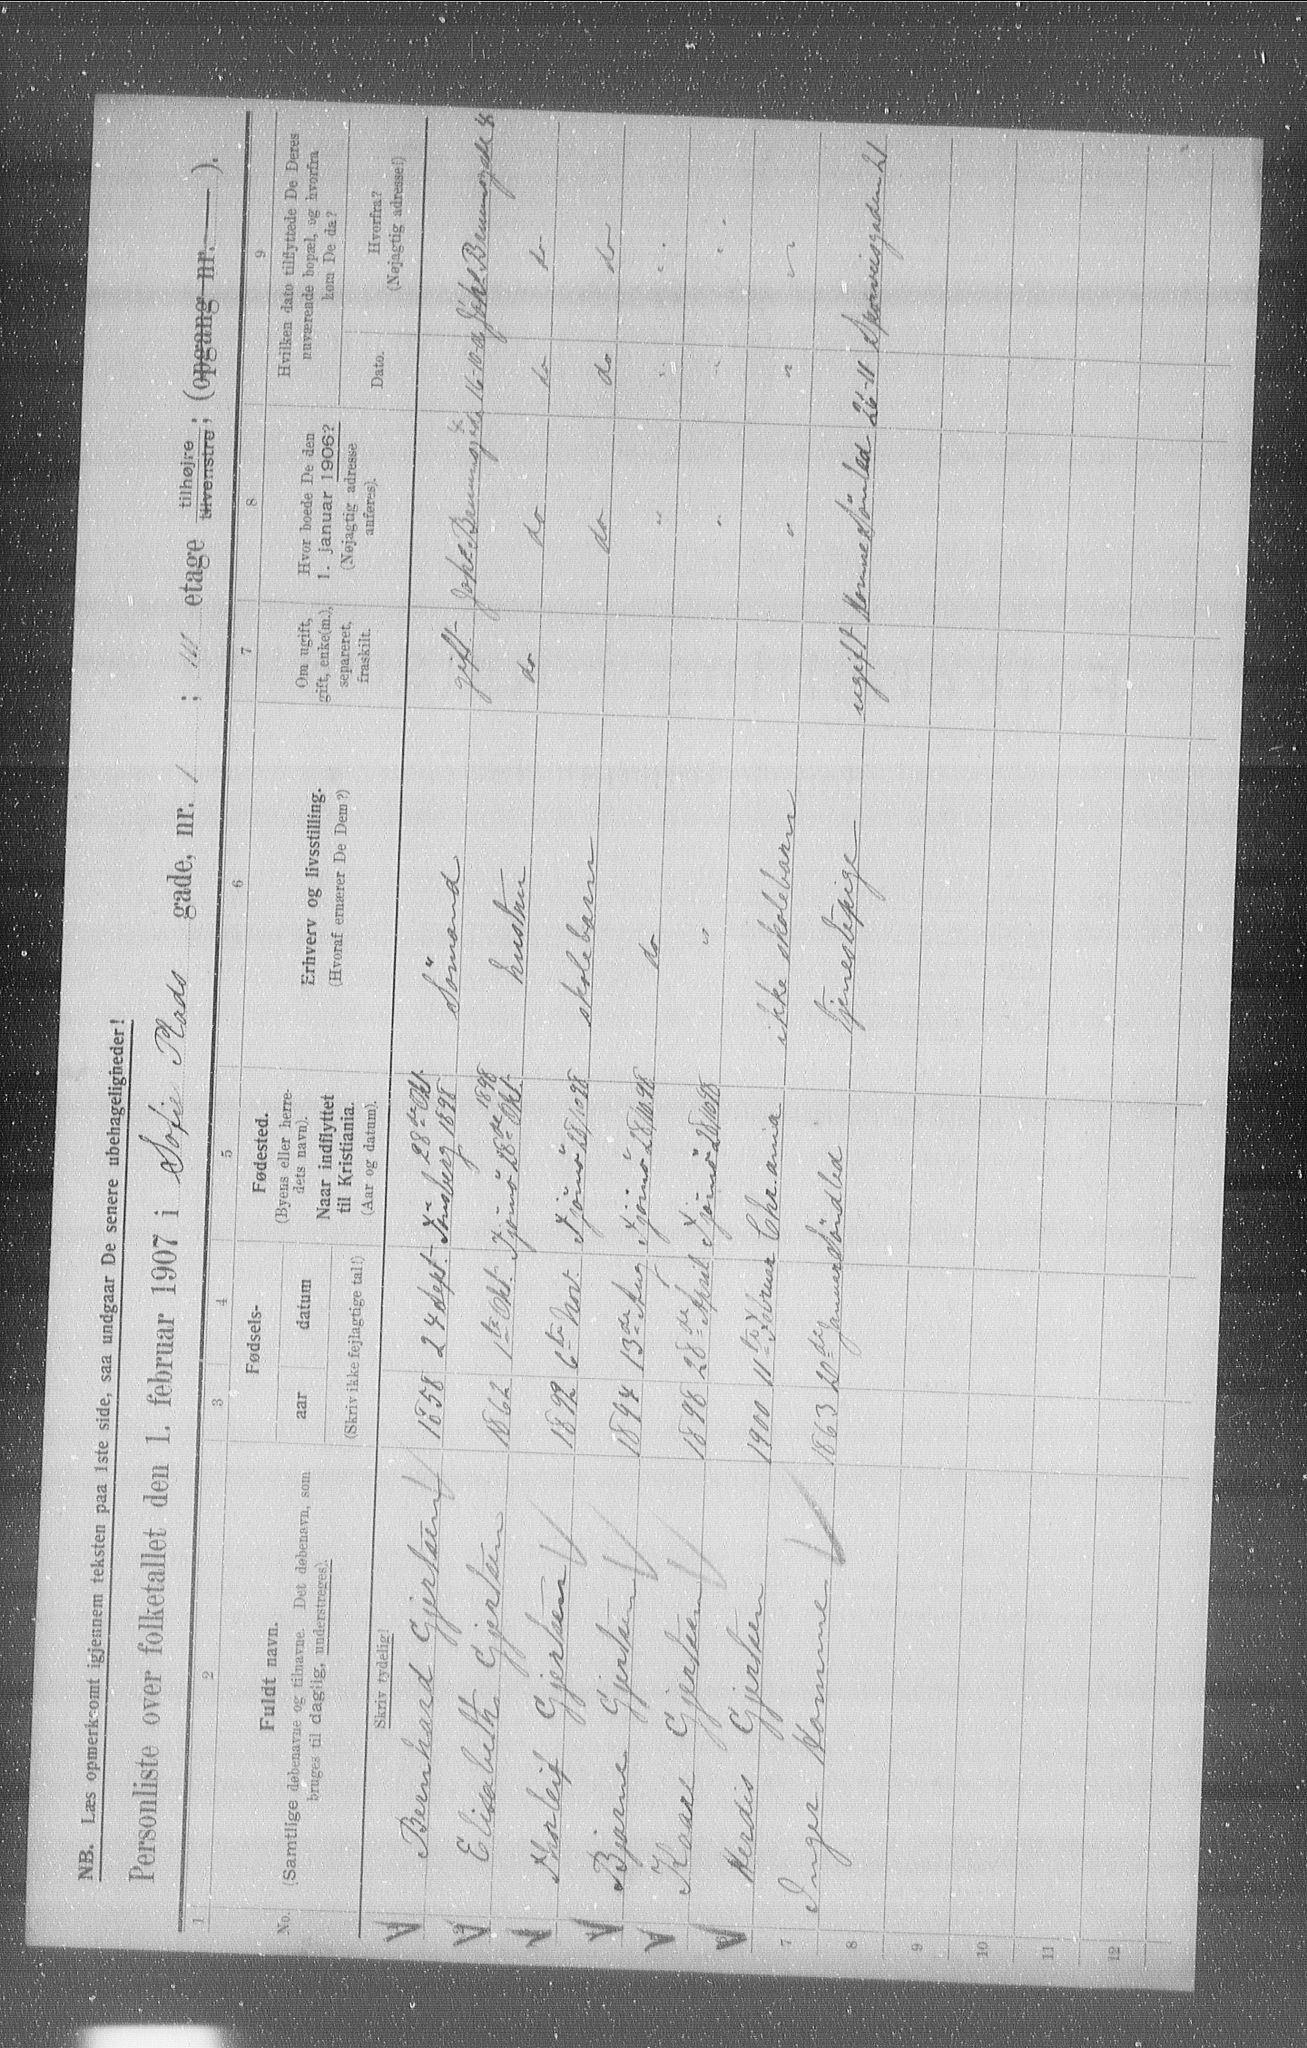 NB. Læs opmerksomt igjennem teksten paa 1ste side, saa undgaar De senere ubehageligheder!
Personliste over folketallet den 1. februar 1907 i Sofie Plads gade, nr. 1 ; III etage tilhøjre ; (opgang nr. — ).
tilvenstre
1 2 3 4 5 6 7 8 9
No. Fuldt navn. (Samtlige døbenavne og tilnavne. Det døbenavn, som bruges til daglig, understreges).
Fødsels- aar datum (Skriv ikke fejlagtige tal!)
Fødested. (Byens eller herredets navn). Naar indflyttet til Kristiania. (Aar og datum).
Erhverv og livsstilling. (Hvoraf ernærer De Dem?)
Om ugift, gift, enke(m.), separeret, fraskilt.
Hvor boede De den 1. januar 1906? (Nøjagtig adresse anføres).
Hvilken dato tilflyttede De Deres nuværende bopæl, og hvorfra kom De da?
Dato. Hvorfra? (Nøjagtig adresse!)
Skriv tydelig!
Bernhard Gjertsen 1858 24 Sept. Tönsberg 28de Okt. 1898 Sömand gift
Elisabeth Gjertsen 1862 1ste Okt. Tjömö 28de Okt. 1898 hustru do do do do
Thorleif Gjertsen 1892 6te Nov. Tjömö 28/10 98 skolebarn do do do
Bjarne Gjertsen 1894 13de Aug Tjömö 28/10 98 do " " "
Kaare Gjertsen 1898 28de April Tjömö 28/10 98 " " " "
Herdis Gjertsen 1900 11te Februar Chr.ania ikke skolebarn " " "
7 Inger Homme 1863 20de Januar Söndled tjenestepige ugift Homme Söndled 26-11 Sporveisgaden 21
8
9
10
11
12